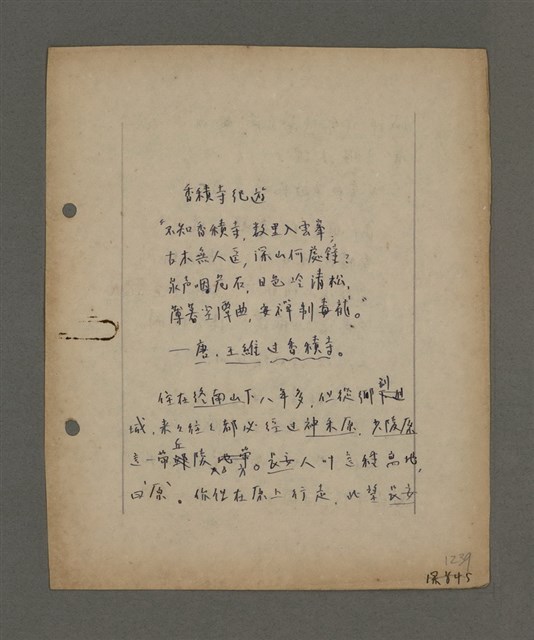 香積寺紀遊
“不知香積寺，數里入雲峯；
古木無人逕，深山何處鐘？
泉声咽危石，日色冷清松，
薄暮空潭曲，安禪制毒龍。”
—唐．王維 过香積寺。
住在終南山下八年多，但從鄉到
城，来々往々都必经过神禾原、少陵原
這一帶丘陵地方。長安人叫這種高地，
曰‘原’。你佇在原上行走，北望長安
1239